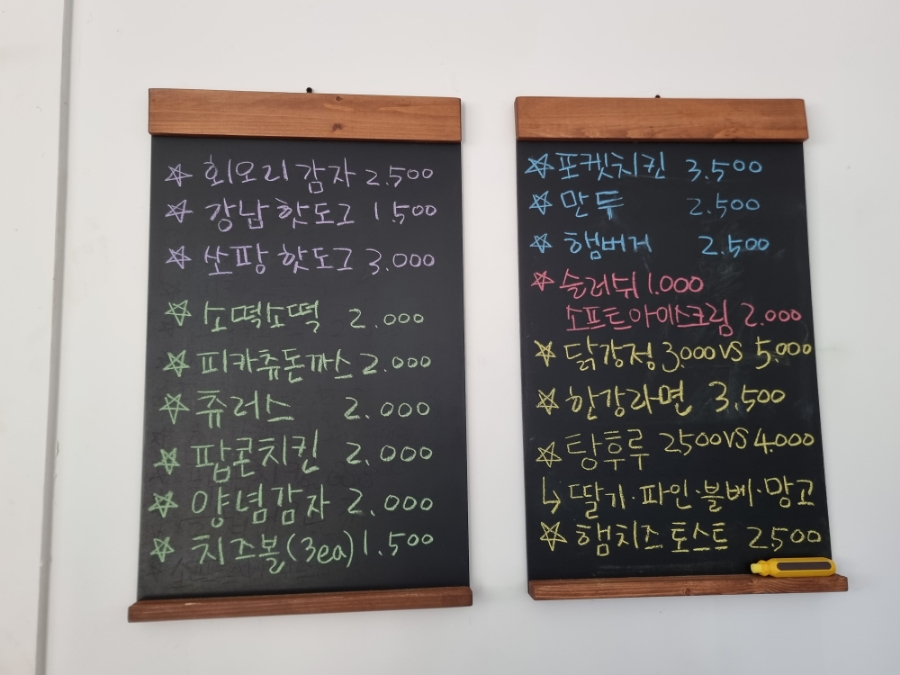 ☆ 회오리감자 2.500
☆ 강남핫도그 1.500
☆ 쏘팡핫도그 3.000
☆ 소떡소떡 2.000
☆ 피카츄돈까스 2.000
☆ 츄러스 2.000
☆ 팝콘치킨 2.000
☆ 양념감자 2.000
☆ 치즈볼(3ea) 1.500
☆ 포켓치킨 3.500
☆ 만두 2.500
☆ 햄버거 2.500
☆ 슬러쉬 1.000
소프트아이스크림 2.000
☆ 닭강정 3.000 VS 5.000
☆ 한강라면 3,500
☆ 탕후루 2500 VS 4.000
↳ 딸기·파인·블베·망고
☆ 햄치즈토스트 2.500